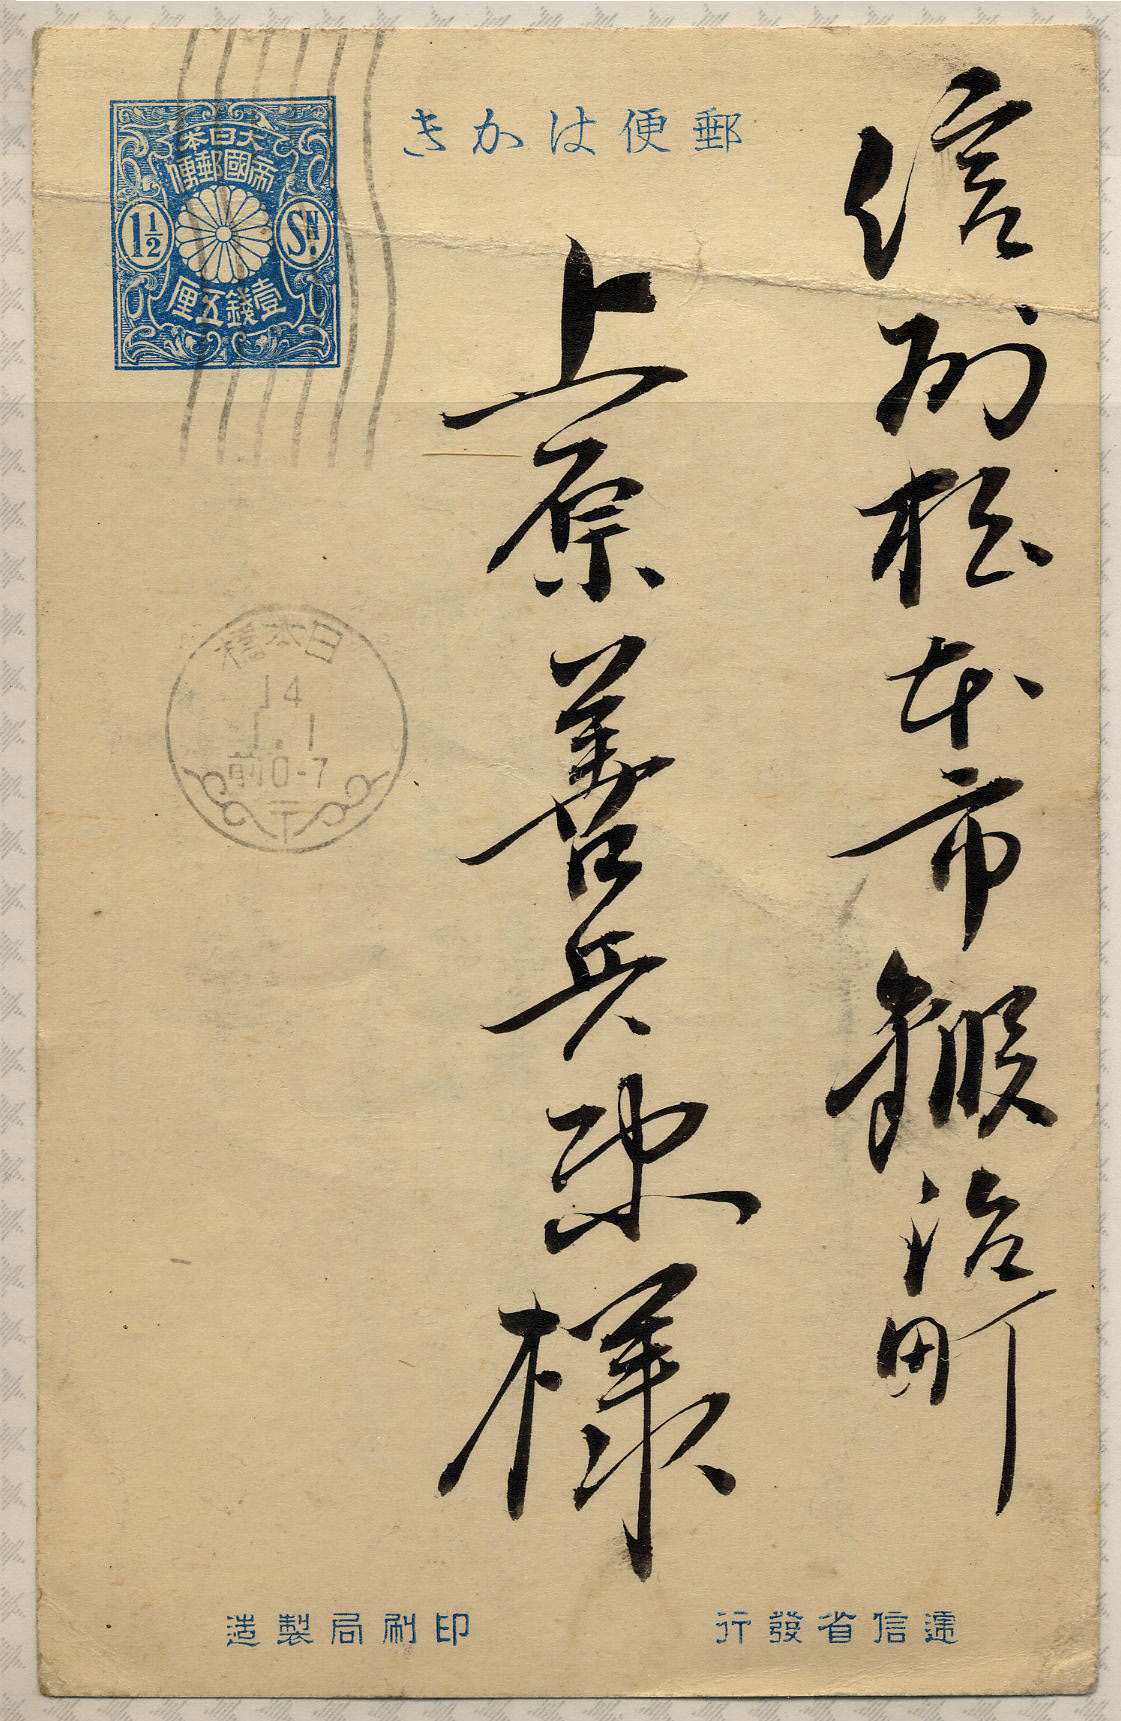 郵便はかき
大日本
帝國郵便
1½ SN.
壹錢五厘
信州松本市鍜治町
上原善兵衛様
日本橋
14
1.1
前0-7
〒
遞信省發行
印刷局製造